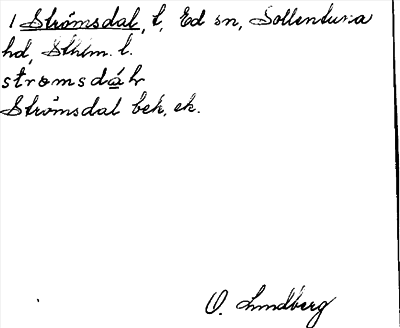 1 Strömsdal, t, Ed sn, Sollentuna
hd, Sthlm. l.
Strömsdal bek, ek.
O. Lundberg